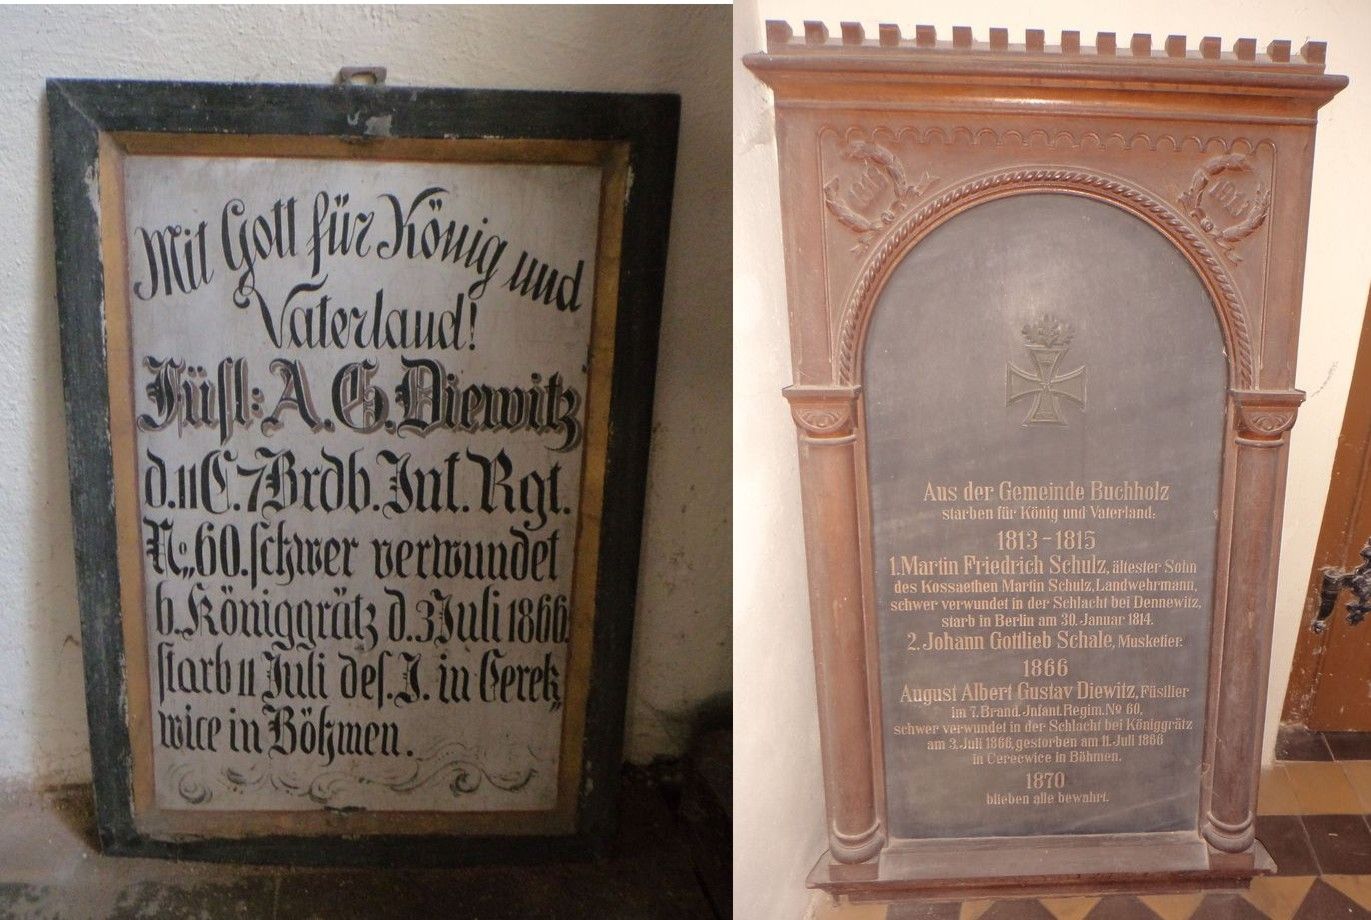 Mit Gott für König und
Vaterland!
Füsl: A. G. Diewitz
d. 11 C. 7 Brdb. Inf. Rgt.
No. 60. schwer verwundet
b. Königgrätz d. 3 Juli 1866.
starb 11 Juli des. J. in Cerek„
wice in Böhmen.
Aus der Gemeinde Buchholz
starben für König und Vaterland:
1813-1815
1. Martin Friedrich Schulz, ältester Sohn
des Kossaethen Martin Schulz, Landwehrmann,
schwer verwundet in der Schlacht bei Dennewitz,
starb in Berlin am 30. Januar 1814.
2. Johann Gottlieb Schale, Musketier.
1866
August Albert Gustav Diewitz, Füsilier
im 7. Brand. Jnfant. Regim. No 60,
schwer verwundet in der Schlacht bei Königgrätz
am 3. Juli 1866, gestorben am 11. Juli 1866
in Cerecwice in Böhmen.
1870
blieben alle bewahrt.